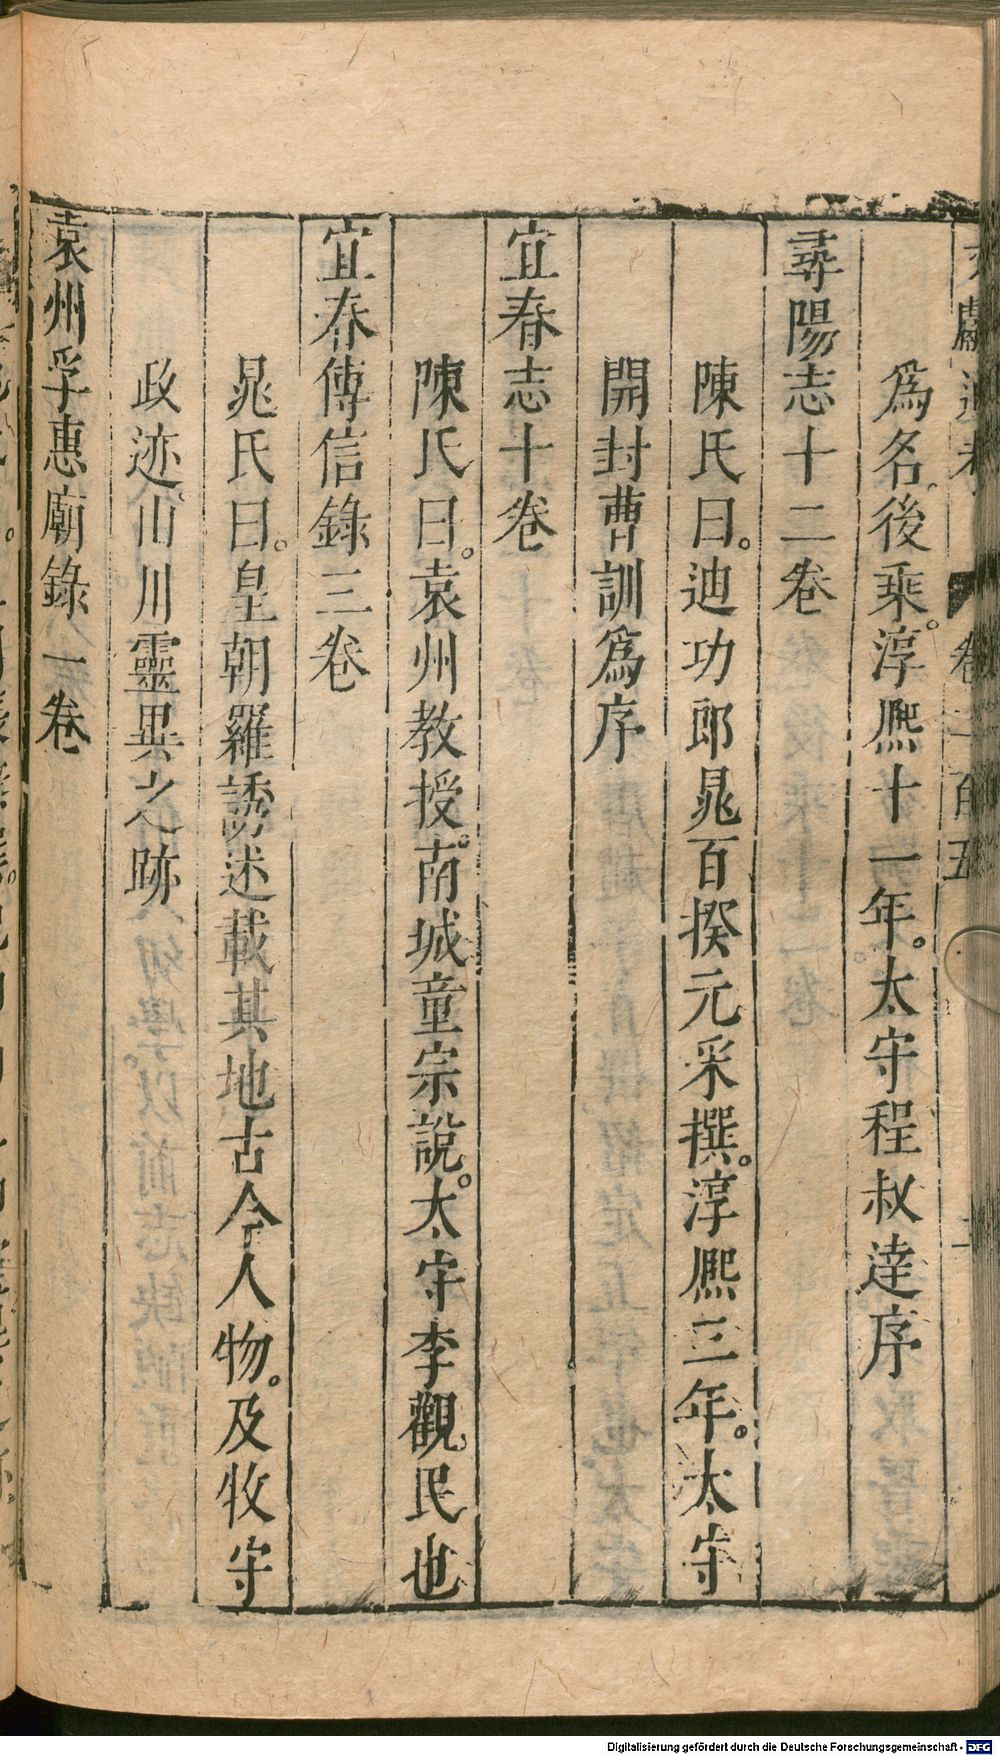 文獻通考 卷二百五 二
爲名。後乘。淳熈十一年。太守程叔達序
尋陽志十二卷
陳氏曰。迪功郎晁百揆元采撰。淳熈三年。太守
開封曹訓爲序
宜春志十卷
陳氏曰。袁州教授。南城童宗說。太守李觀民也
宜春傳信錄三卷
晁氏曰。皇朝羅誘述載其地古今人物。及牧守
政迹山川靈異之跡
袁州孚惠廟錄一卷
Digitalisierung gefördert durch die Deutsche Forschungsgemeinschaft - DFG